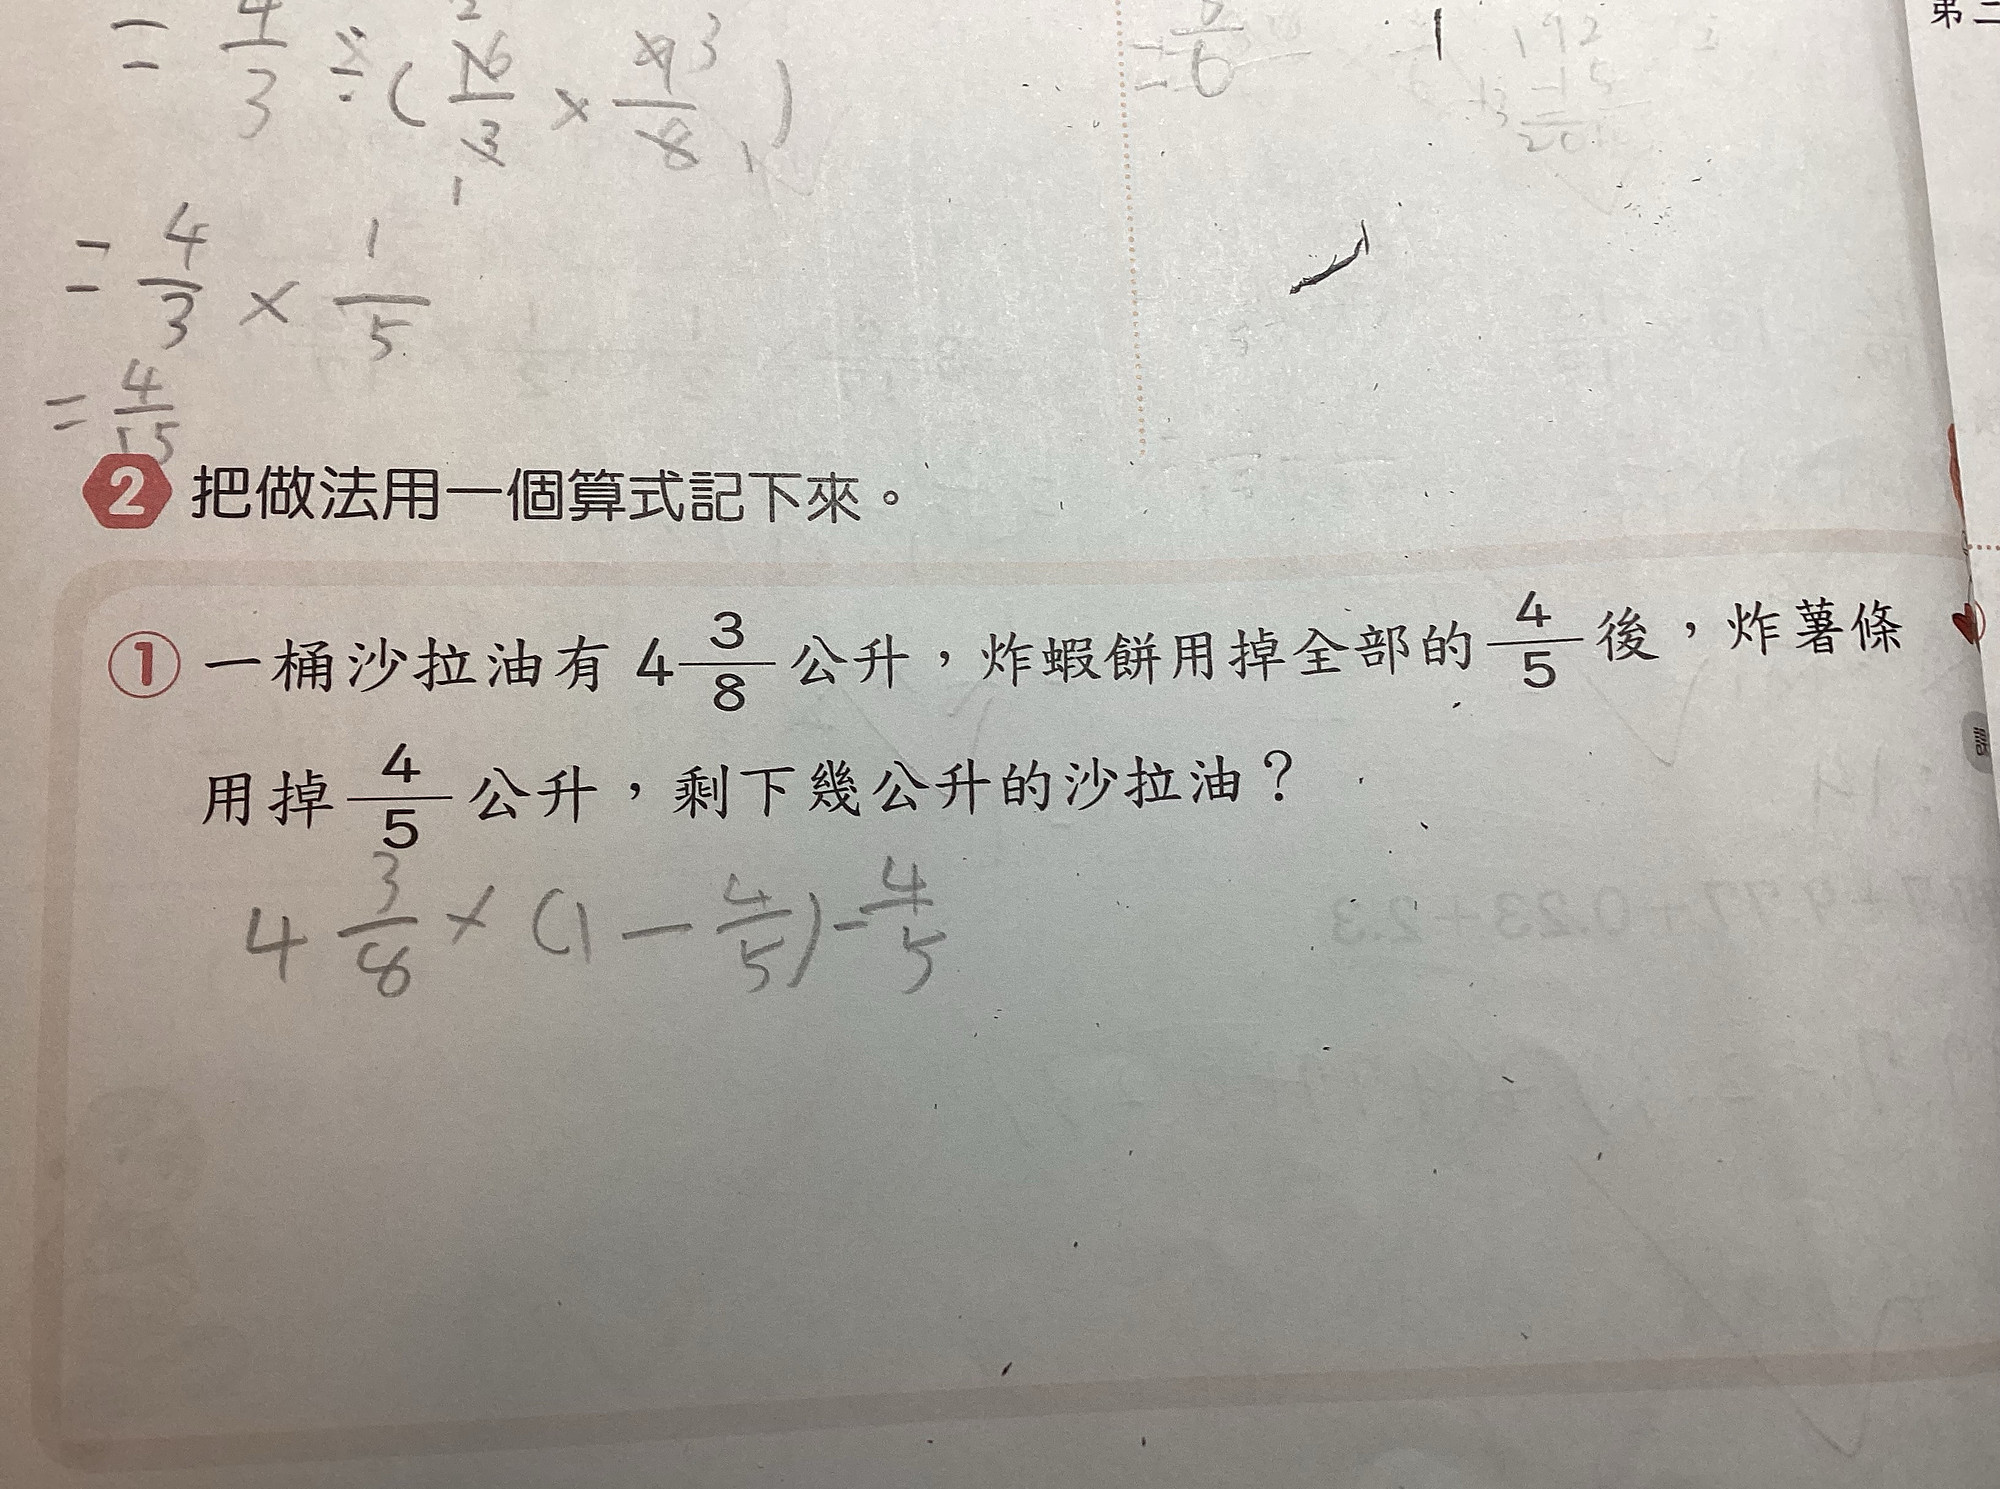 = 4/3 ÷ ( 16/3 × 9/8 )
= 4/3 × 1/5
= 4/15
2 把做法用一個算式記下來。
① 一桶沙拉油有 4 3/8 公升，炸蝦餅用掉全部的 4/5 後，炸薯條
用掉 4/5 公升，剩下幾公升的沙拉油？
4 3/8 × (1 - 4/5) - 4/5
第二